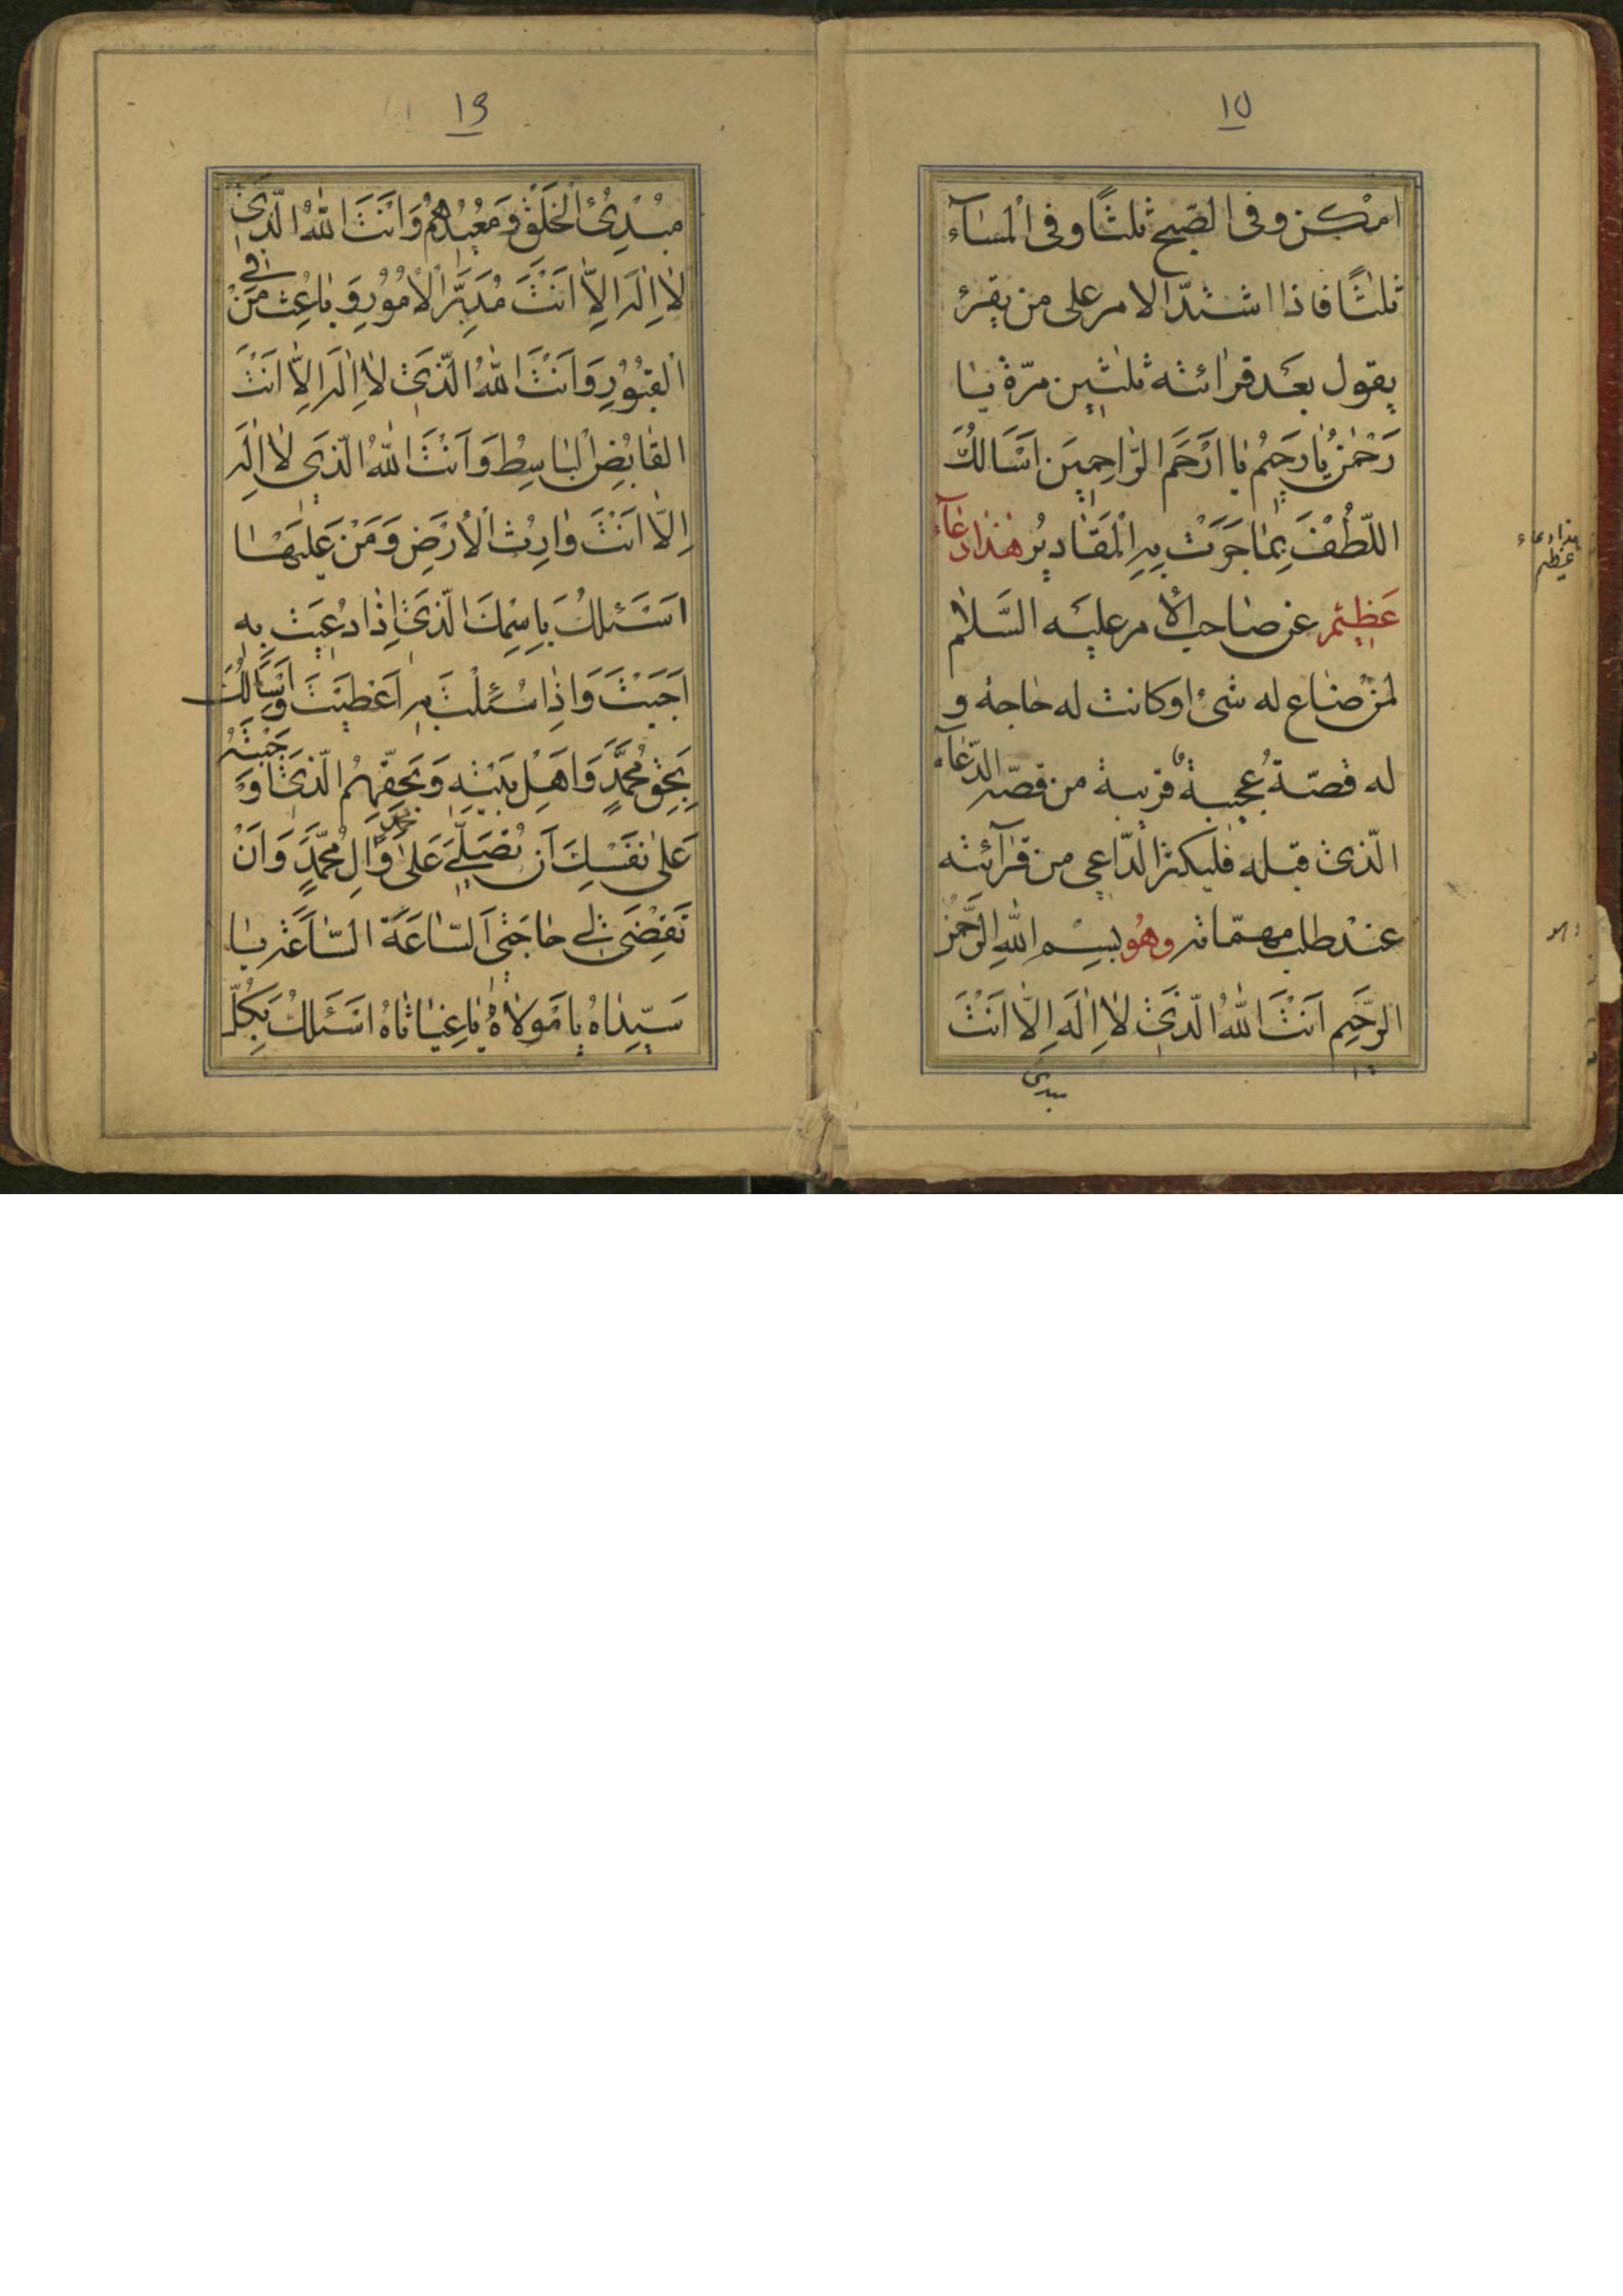 ١٥
امْكن وفى الصّبح ثلثًا وفى الْمسآء
ثلثًا فاذا اشتدّ الامر على من يقرئ
يقول بعَد قرائته ثلثين مرّة يا
رَحْمٰنُ يٰا رَحيمُ يٰا اَرْحَمَ الرّٰاحِمِينَ اَسْاَلُكَ
اللّطُفَ بِمٰا جَرَتْ بِهِ الْمَقٰاديُر هٰذٰا دعٰآء
عَظيٖم عن صٰاحب الأمر عليَه السَّلام
لمن ضٰاع له شئ او كانت له حٰاجة و
له قصّة عُجيبة قريبة من قصّه الدّعٰآء
الّذى قبله فليكثر الدّاعى من قرٰآئته
عنْد طلب مهمّاته وهُو بِسِْمِ اللهِ الرَّحْمٰنِ
الرَّحِيم اَنْتَ اللّٰهُ الَّذى لاٰ اِلٰهَ اِلاّٰ اَنْتَ
مبدئ
هذا دعاء
عظيم
١٦
مُبْدِئُ الْخَلْقِ وَمُعيٖدُهُمْ وَاَنْتَ اللّٰهُ الَّذى
لاٰ اِلٰهَ اِلاّٰ اَنْتَ مُدَبِّرُ الْاُمُورِ وَبٰاعِثُ مَنْ فِى
الْقُبُورِ وَاَنْتَ اللّٰهُ الَّذى لاٰ اِلٰهَ اِلاّٰ اَنْتَ
الْقٰابِضُ الْبٰاسِطُ وَاَنْتَ اللّٰهُ الَّذى لاٰ اِلٰهَ
اِلاّٰ اَنْتَ وٰارِثُ الْاَرْضِ وَمَنْ عَلَيْهٰا
اَسْئَلُكَ بِاسْمِكَ الَّذى اِذٰا دُعيٖتَ بِهِ
اَجَبْتَ وَاِذٰا سُئِلْتَ بِهِ اَعْطَيْتَ وَاَسْاَلُكَ
بِحَقِّ مُحَمَّدٍ وَاَهْلِ بَيْتِهِ وَبِحَقِّهِمُ الَّذى اَوْجَبْتَهُ
عَلىٰ نَفْسِكَ اَنْ تُصَلِّىَ عَلىٰ مُحَمَّدٍ وَاٰلِ مُحَمَّدٍ وَاَنْ
تَقْضِىَ لى حٰاجَتى اَلسّٰاعَةَ السّٰاعَةَ يٰا
سَيِّدٰاهُ يٰا مَوْلاٰهُ يٰا غِيٰاثٰاهُ اَسْئَلُكَ بِكُلِّ